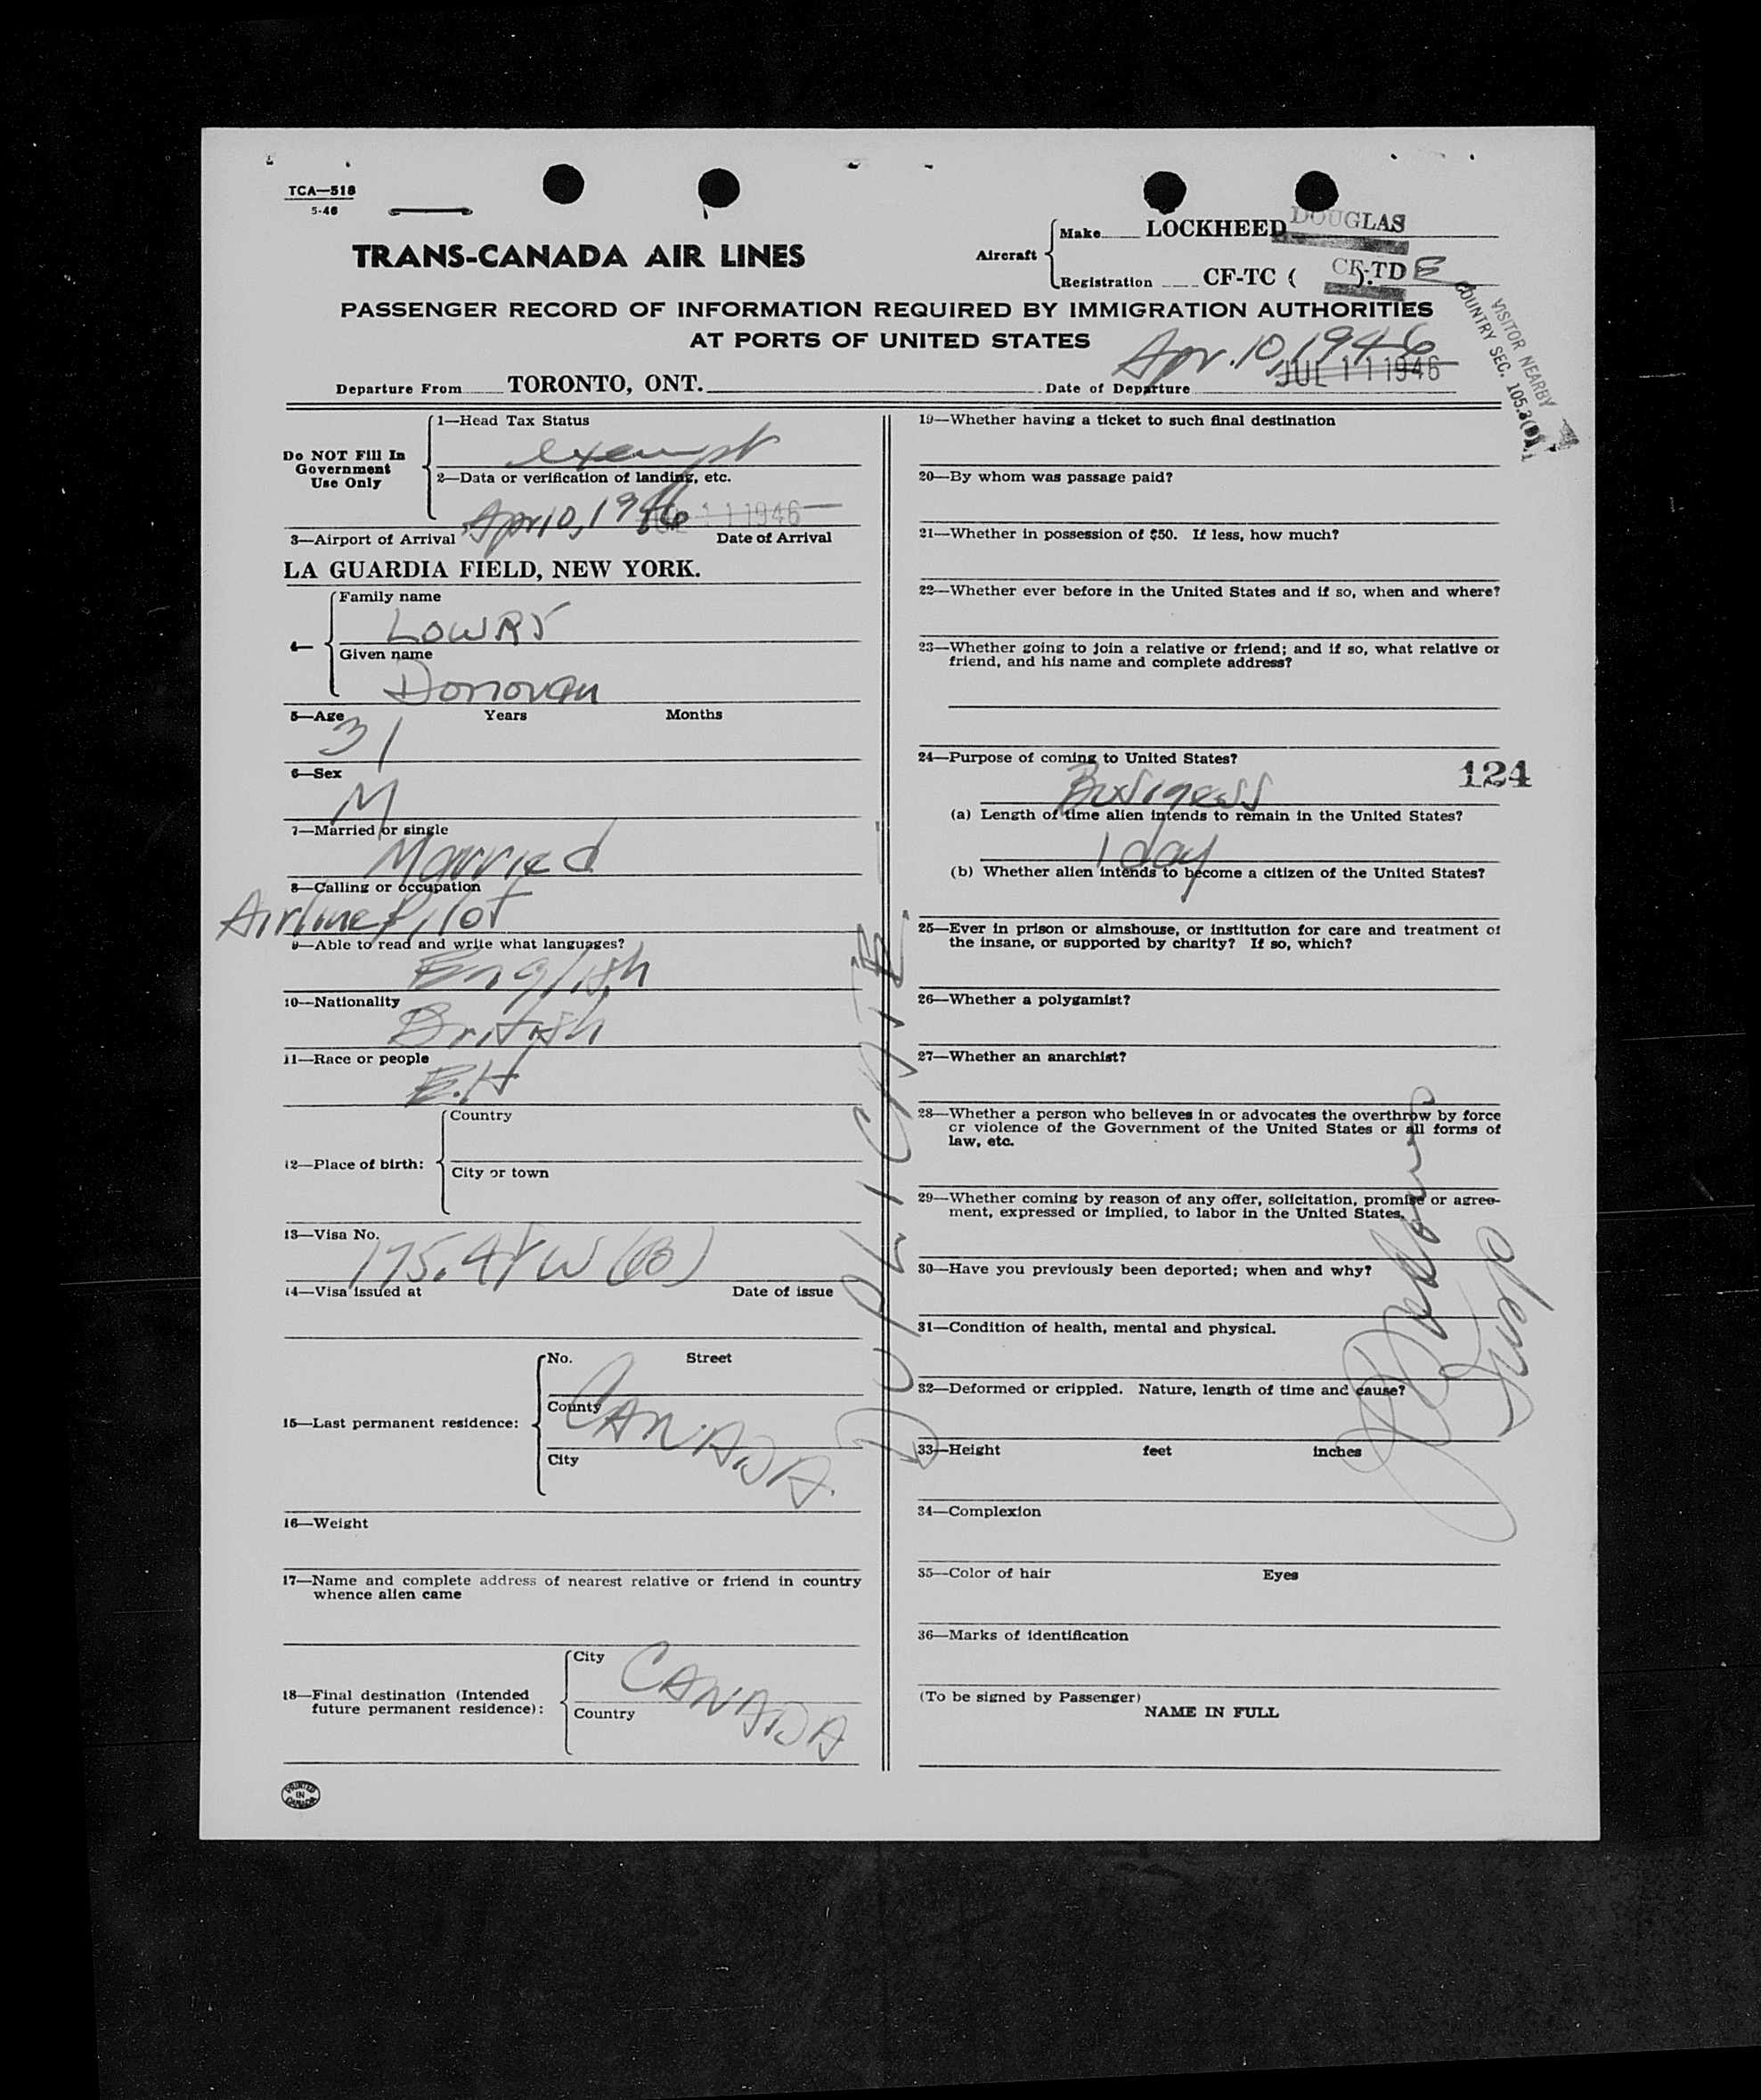 TCA—518
5-46
TRANS-CANADA AIR LINES
Aircraft
Make LOCKHEED DOUGLAS
Registration CF-TC ( ). CF-TD E
PASSENGER RECORD OF INFORMATION REQUIRED BY IMMIGRATION AUTHORITIES
AT PORTS OF UNITED STATES
VISITOR NEARBY
COUNTRY SEC. 105.3
Apr. 10, 1946
Departure From TORONTO, ONT. Date of Departure JUL 11 1946
Do NOT Fill In
Government
Use Only
1—Head Tax Status
exempt
2—Data or verification of landing, etc.
Apr 10, 1946 11 1946
3—Airport of Arrival Date of Arrival
LA GUARDIA FIELD, NEW YORK.
4—
Family name
LOWRY
Given name
Donovan
5—Age Years Months
31
6—Sex
M
7—Married or single
Married
8—Calling or occupation
Airline Pilot
9—Able to read and write what languages?
English
10—Nationality
British
11—Race or people
12—Place of birth:
Country
City or town
13—Visa No.
14—Visa issued at Date of issue
15—Last permanent residence:
No. Street
County
CANADA
City
16—Weight
17—Name and complete address of nearest relative or friend in country
whence alien came
18—Final destination (Intended
future permanent residence):
City
CANADA
Country
PRINTED
IN
CANADA
DUPLICATE
19—Whether having a ticket to such final destination
20—By whom was passage paid?
21—Whether in possession of $50. If less, how much?
22—Whether ever before in the United States and if so, when and where?
23—Whether going to join a relative or friend; and if so, what relative or
friend, and his name and complete address?
24—Purpose of coming to United States?
124
Business
(a) Length of time alien intends to remain in the United States?
1 day
(b) Whether alien intends to become a citizen of the United States?
25—Ever in prison or almshouse, or institution for care and treatment of
the insane, or supported by charity? If so, which?
26—Whether a polygamist?
27—Whether an anarchist?
28—Whether a person who believes in or advocates the overthrow by force
or violence of the Government of the United States or all forms of
law, etc.
29—Whether coming by reason of any offer, solicitation, promise or agree-
ment, expressed or implied, to labor in the United States.
30—Have you previously been deported; when and why?
31—Condition of health, mental and physical.
32—Deformed or crippled. Nature, length of time and cause?
33—Height feet inches
34—Complexion
35—Color of hair Eyes
36—Marks of identification
(To be signed by Passenger)
NAME IN FULL